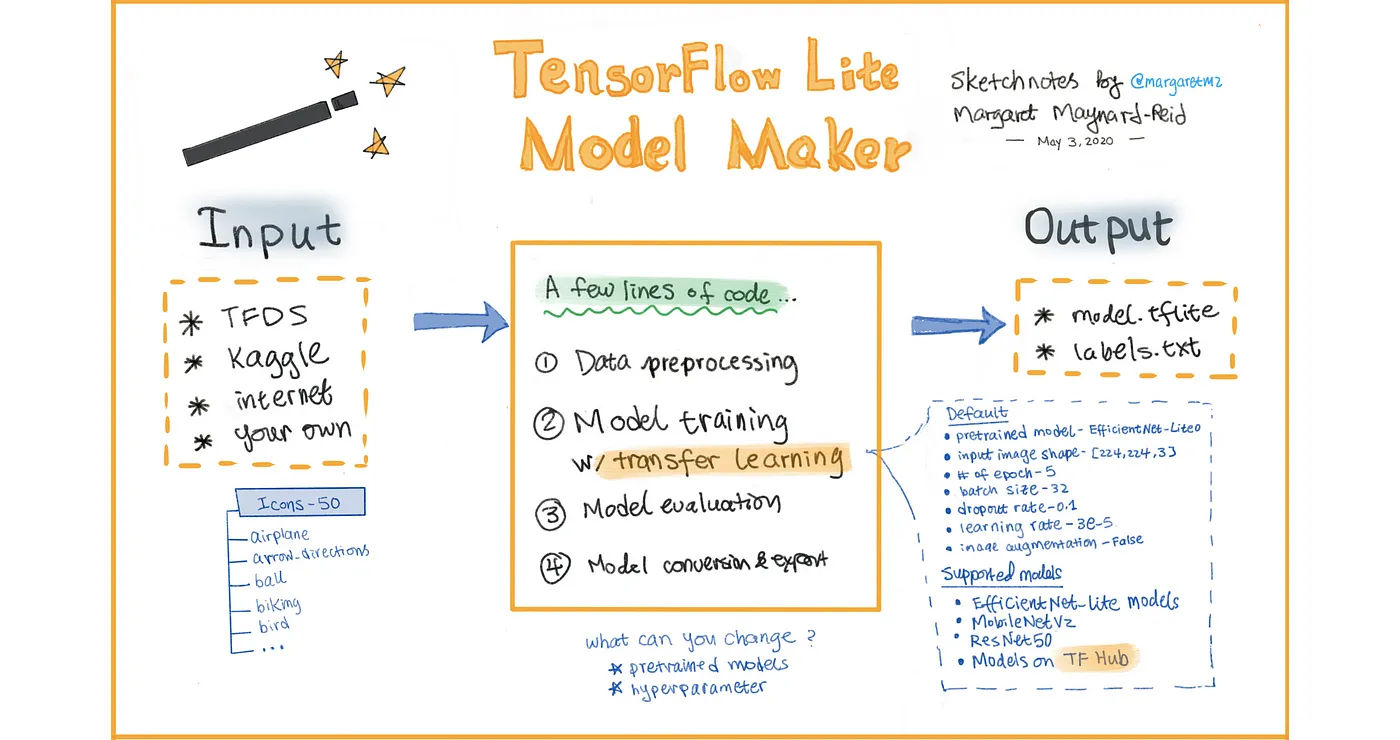 TensorFlow Lite
Model Maker
Sketchnotes by @margaretmz
Margaret Maynard-Reid
— May 3, 2020 —
Input
* TFDS
* Kaggle
* internet
* your own
Icons-50
airplane
arrow_directions
ball
biking
bird
...
A few lines of code...
① Data preprocessing
② Model training
w/ transfer learning
③ Model evaluation
④ Model conversion & export
what can you change ?
* pretrained models
* hyperparameter
Output
* model.tflite
* labels.txt
Default
• pretrained model - EfficientNet-Lite0
• input image shape - [224,224,3]
• # of epoch - 5
• batch size - 32
• dropout rate - 0.1
• learning rate - 3e-5
• image augmentation - False
Supported models
• EfficientNet-Lite models
• MobileNetV2
• ResNet50
• Models on TF Hub